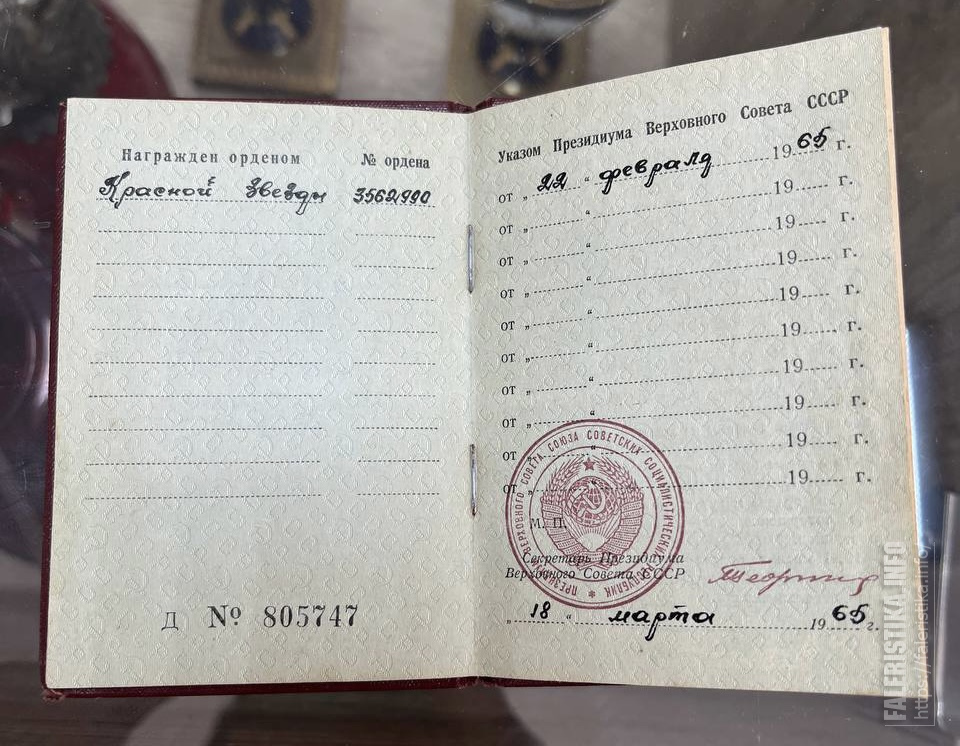 Награжден орденом № ордена
Красной Звезды 3562990
Д № 805747
Указом Президиума Верховного Совета СССР
от „ 22 “ февраля 1965 г.
от „ “ 19 г.
от „ “ 19 г.
от „ “ 19 г.
от „ “ 19 г.
от „ “ 19 г.
от „ “ 19 г.
от „ “ 19 г.
от „ “ 19 г.
от „ “ 19 г.
ПРЕЗИДИУМ ВЕРХОВНОГО СОВЕТА СОЮЗА СОВЕТСКИХ СОЦИАЛИСТИЧЕСКИХ РЕСПУБЛИК
М. П.
Секретарь Президиума
Верховного Совета СССР
„ 18 “ марта 1965 г.
FALERISTIKA.INFO
https://faleristika.info